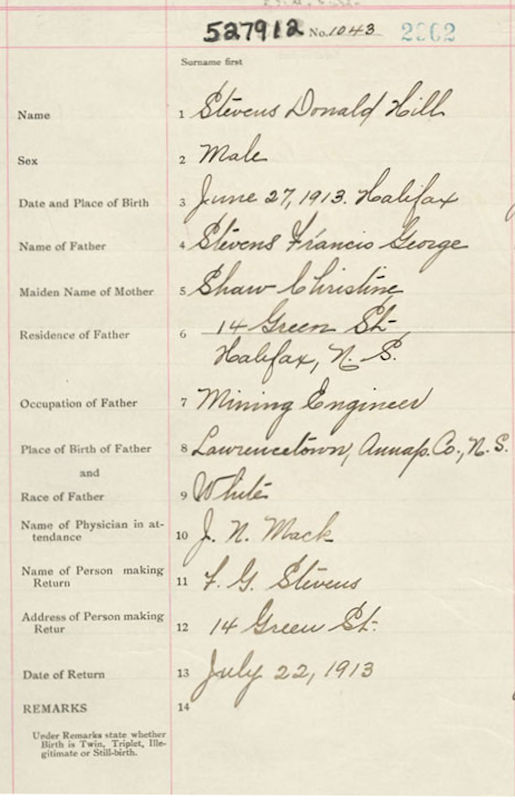 527912 No. 1043 2902
Surname first
Name 1 Stevens Donald Hill
Sex 2 Male
Date and Place of Birth 3 June 27, 1913. Halifax
Name of Father 4 Stevens Francis George
Maiden Name of Mother 5 Shaw Christine
Residence of Father 6 14 Green St.
Halifax, N. S.
Occupation of Father 7 Mining Engineer
Place of Birth of Father 8 Lawrencetown, Annap. Co., N. S.
and
Race of Father 9 White
Name of Physician in at-
tendance 10 J. N. Mack
Name of Person making
Return 11 F. G. Stevens
Address of Person making
Retur 12 14 Green St.
Date of Return 13 July 22, 1913
REMARKS 14
Under Remarks state whether
Birth is Twin, Triplet, Ille-
gitimate or Still-birth.